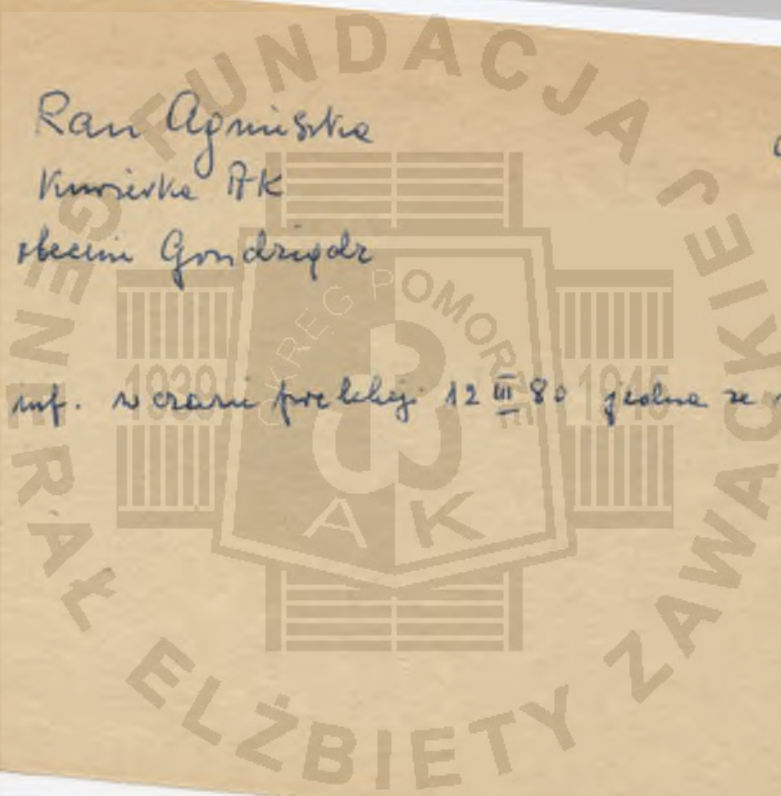 Ran Agnieszka
Kurierka AK
obecnie Gondziądz
inf. w czasie prelekcji 12 III 80 jedna ze
FUNDACJA GENERAŁ ELŻBIETY ZAWACKIEJ
OKRĘG POMORZE
1939 1945
AK